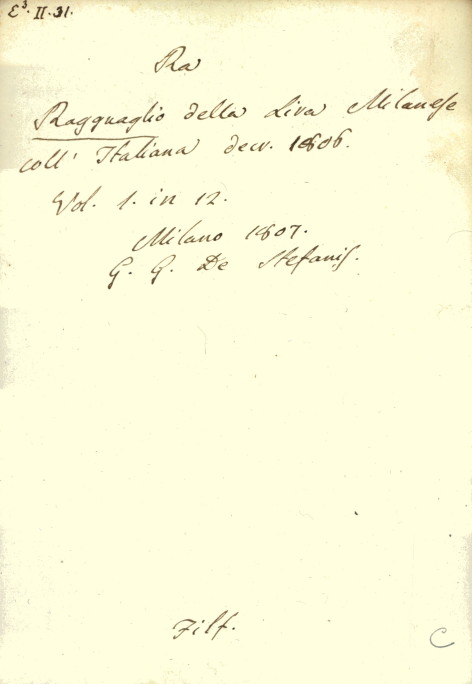 E³. II. 31.
Ra
Ragguaglio della Lira Milanese
coll' Italiana decr. 1806.
Vol. 1. in 12.
Milano 1807.
G. G. De Stefanis.
Filf.
C